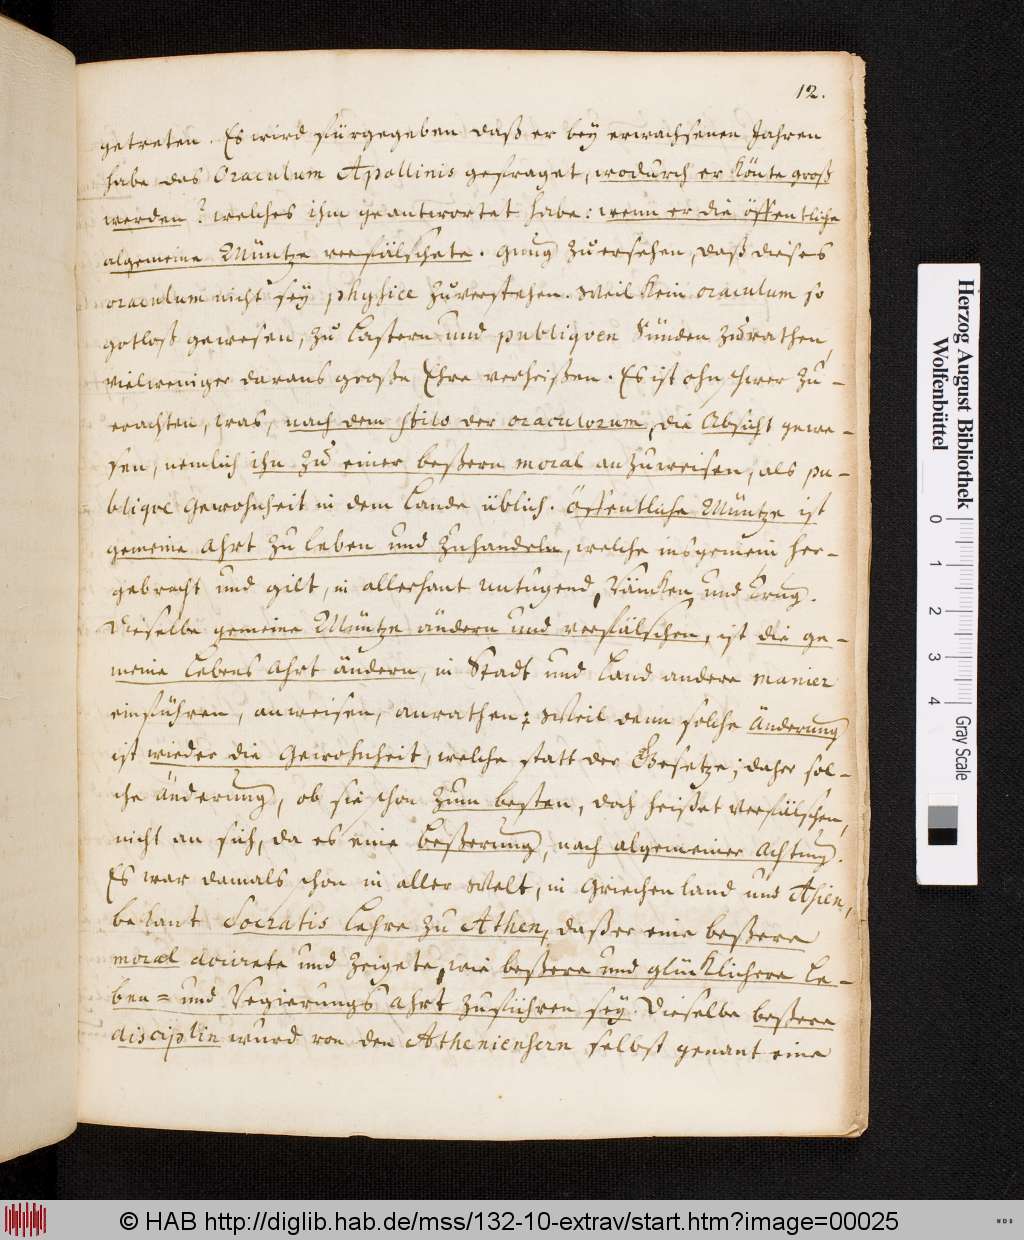 12.
getreten. Es wird fürgegeben daß er bey erwachsenen Jahren
habe das Oraculum Apollinis gefraget, wodurch er könte groß
werden? welches ihm geantwortet habe: wenn er die öffentliche
algemeine Müntze verfälschete. gnug zu ersehen, daß dieses
oraculum nicht sey physice zuverstehen. weil kein oraculum so
gotloß gewesen, zu Lastern und publiqven Sünden zu rathen,
vielweniger daraus große Ehre verheißen. Es ist ohnschwer zu-
erachten, was, nach dem stilo der oraculorum, die Absicht gewe-
sen, nemlich ihn zu einer beßern moral anzuweisen, als pu-
bliqve Gewohnheit in dem Lande üblich. öffentliche Müntze ist
gemeine Ahrt zu leben und zuhandeln, welche insgemein her-
gebracht und gilt, in allerhant untugend, Räncken und Trug.
Dieselbe gemeine Müntze ändern und verfälschen, ist die ge-
meine Lebens Ahrt ändern, in Stadt und Land andere manier
einführen, anweisen, anrathen; weil denn solche Änderung
ist wieder die Gewohnheit, welche statt der Gesetze; daher sol-
che Änderung, ob sie schon zum besten, doch heißet verfälschen,
nicht an sich, da es eine beßerung, nach algemeiner Achtung.
Es war damals schon in aller Welt, in Griechenland und Asien,
bekant Socratis Lehre zu Athen, daß er eine beßere
moral docirete und zeigete, wie beßere und glücklichere Le-
ben = und Regierungs Ahrt zuführen sey. Dieselbe beßere
disciplin wurd von den Atheniensern selbst genant eine
Herzog August Bibliothek
Wolfenbüttel
0 1 2 3 4 Gray Scale
© HAB http://diglib.hab.de/mss/132-10-extrav/start.htm?image=00025